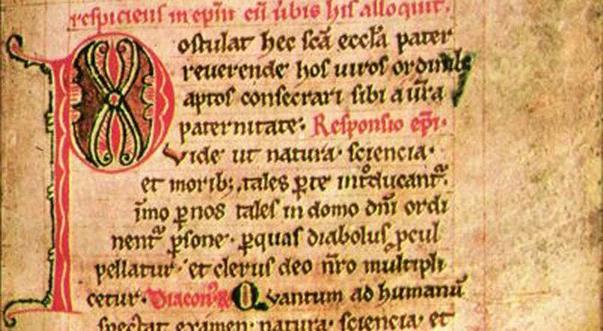 respiciens in ep̄m cū ūbis his alloquit᷑.
Postulat hec sc̄a eccl̄a pater
reuerende hos uiros ordini
aptos consecrari sibi a ūr̄a
paternitate. Responsio ep̄i.
Vide ut natura. sciencia.
et morib; tales ꝑ te int᷑ducant᷑.
īmo ꝑ nos tales in domo dn̄i ordi
nent᷑ ꝑsone. ꝑ quas diabolus ꝓcul
pellatur. et clerus deo nr̄o multipli
cetur. Diacon᷒ R̄ Quantum ad humanū
spectat examen. natura. sciencia. et